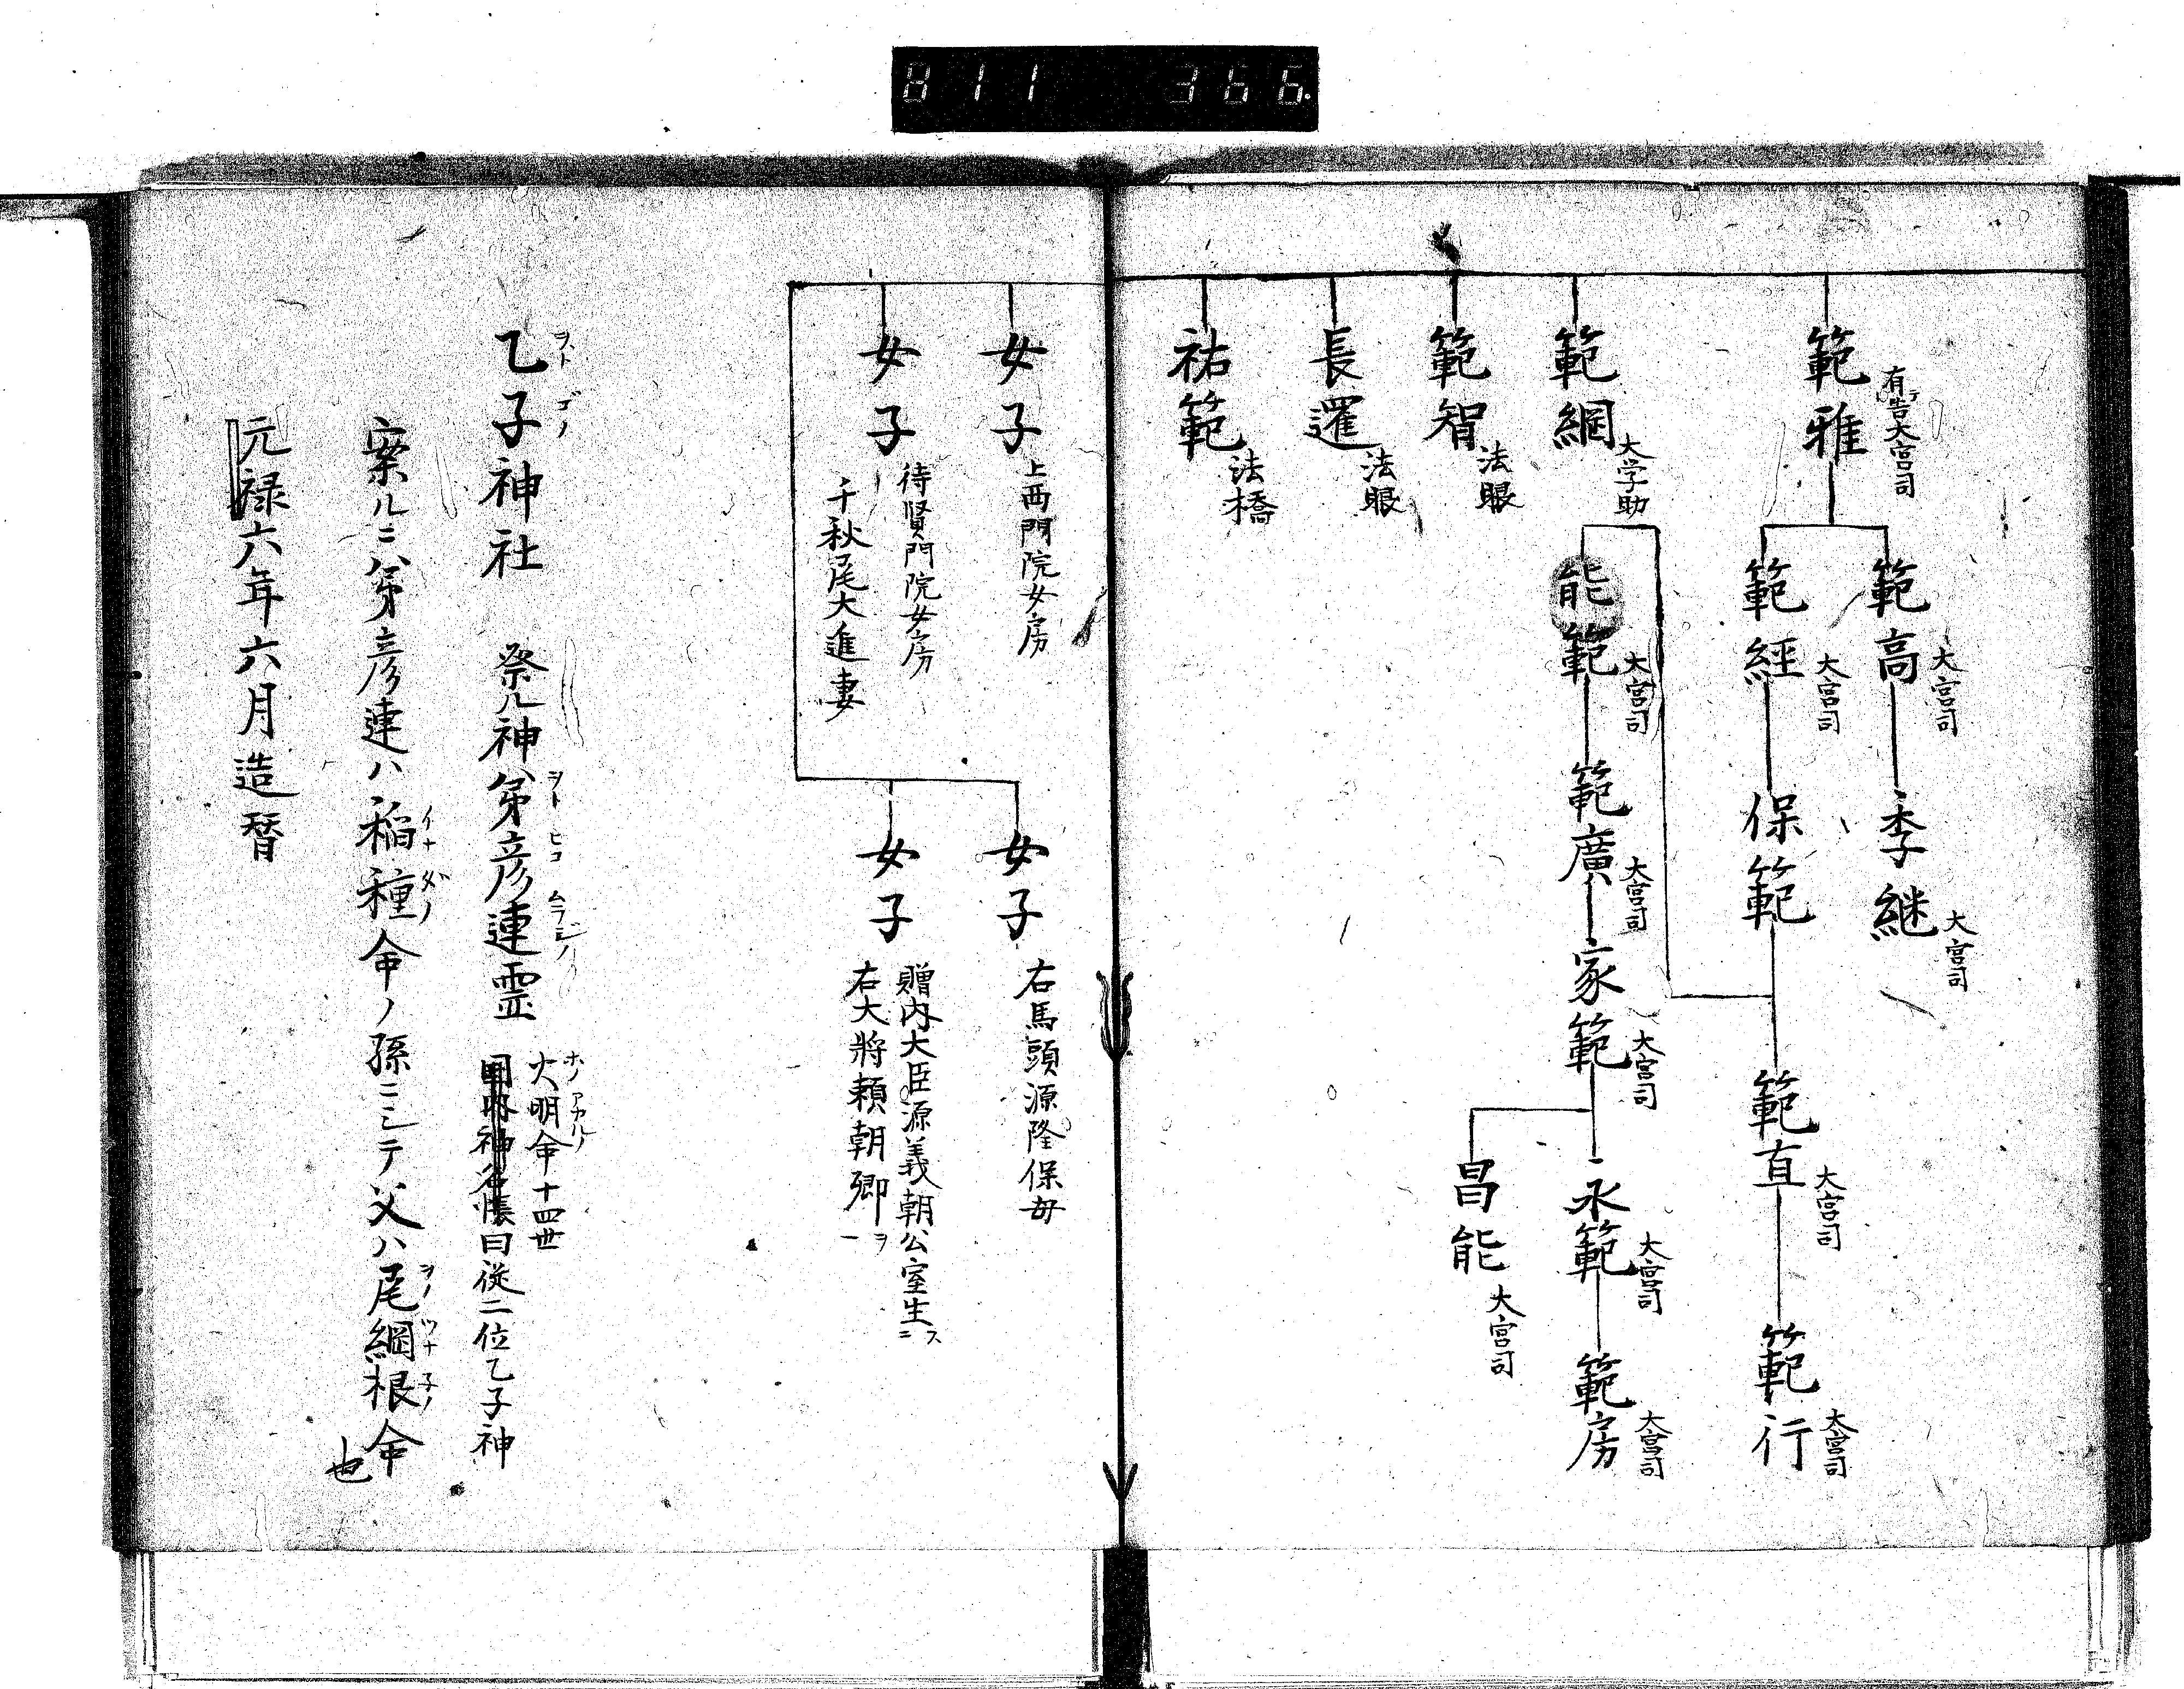 811 366
範雅
有告大宮司
範高 大宮司
季継 大宮司
範經 大宮司
保範
範直 大宮司
範行 大宮司
範綱 大学助
能範 大宮司
範廣 大宮司
家範 大宮司
永範 大宮司
範房 大宮司
昌能 大宮司
範智 法眼
長暹 法眼
祐範 法橋
女子 上西門院女房
女子 待賢門院女房
千秋尾大進妻
女子 右馬頭源隆保母
女子 贈内大臣源義朝公室生ス二
右大將頼朝卿ヲ一
乙子神社 祭ル神弟彦連霊 火明命十四世
神名帳曰従二位乙子神
案ルニ弟彦連ハ稲種命ノ孫ニシテ父ハ尾綱根命也
元禄六年六月造替